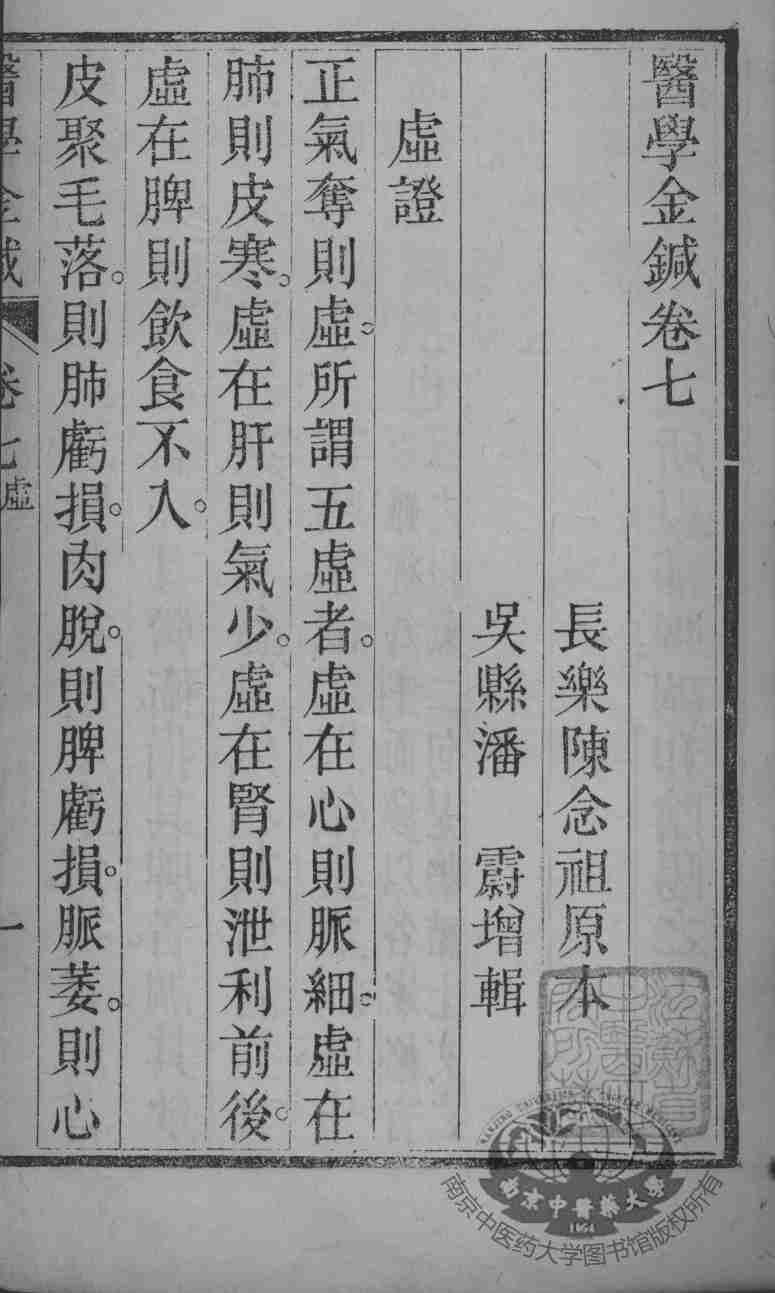 醫學金鍼卷七
長樂陳念祖原本
吳縣潘 霨增輯
虛證
正氣奪則虛。所謂五虛者。虛在心則脈細。虛在
肺則皮寒。虛在肝則氣少。虛在腎則泄利前後。
虛在脾則飲食不入。
皮聚毛落。則肺虧損。肉脫。則脾虧損。脈萎。則心
醫學金鍼 卷七 虛 一
南京中醫藥大學
1954
NANJING UNIVERSITY OF CHINESE MEDICINE
南京中医药大学图书馆版权所有